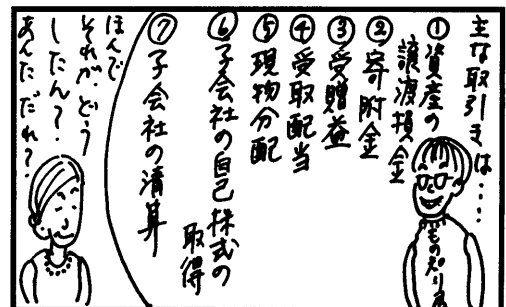 主な取引きは‥‥
①資産の
譲渡損金
②寄附金
③受贈益
④受取配当
⑤現物分配
⑥子会社の自己株式の
取得
⑦子会社の清算
ほんで
それが、どう
したん？
あんただれ？
もの知り